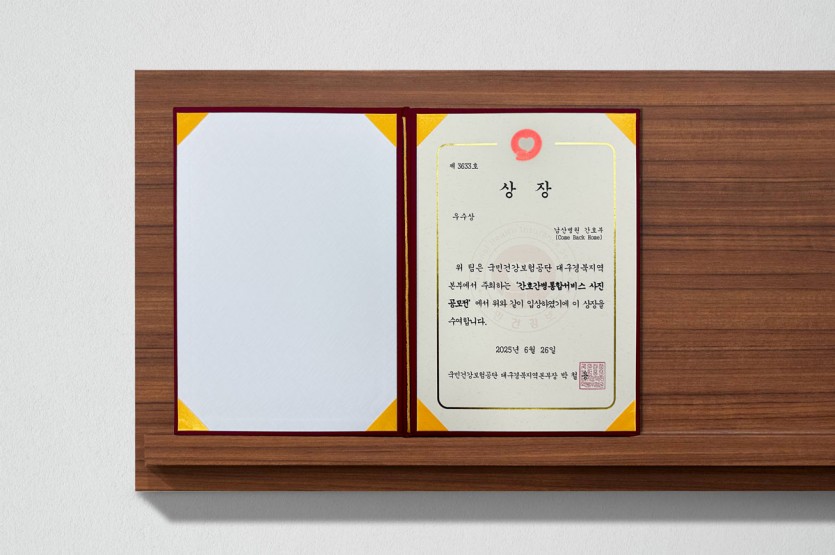 제 3633호
상 장
우수상
남산병원 간호부
(Come Back Home)
위 팀은 국민건강보험공단 대구경북지역
본부에서 주최하는 '간호간병통합서비스 사진
공모전' 에서 위와 같이 입상하였기에 이 상장을
수여합니다.
2025년 6월 26일
국민건강보험공단 대구경북지역본부장 박 철